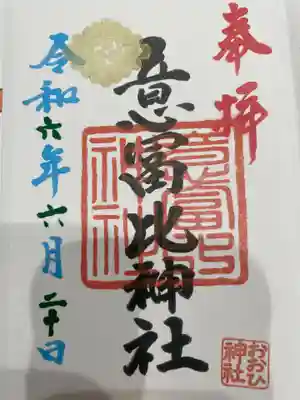 奉拝
意富比神社
意富比
神社
令和六年六月二十日
おおひ
神社